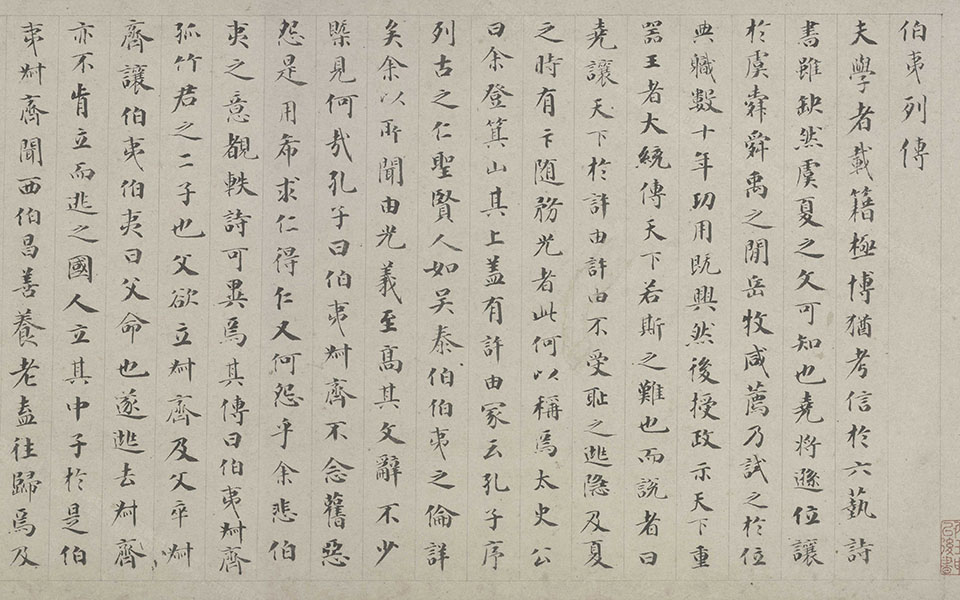 伯夷列傳
夫學者載籍極博猶考信於六藝詩
書雖缺然虞夏之文可知也堯將遜位讓
於虞舜舜禹之閒岳牧咸薦乃試之於位
典職數十年功用既興然後授政示天下重
器王者大統傳天下若斯之難也而說者曰
堯讓天下於許由許由不受恥之逃隱及夏
之時有卞随務光者此何以稱焉太史公
曰余登箕山其上盖有許由冢云孔子序
列古之仁聖賢人如吴泰伯伯夷之倫詳
矣余以所聞由光義至高其文辭不少
槩見何哉孔子曰伯夷叔齊不念舊惡
怨是用希求仁得仁又何怨乎余悲伯
夷之意覩軼詩可異焉其傳曰伯夷叔齊
孤竹君之二子也父欲立叔齊及父卒叔
齊讓伯夷伯夷曰父命也遂逃去叔齊
亦不肯立而逃之國人立其中子於是伯
夷叔齊聞西伯昌善養老盍往歸焉及